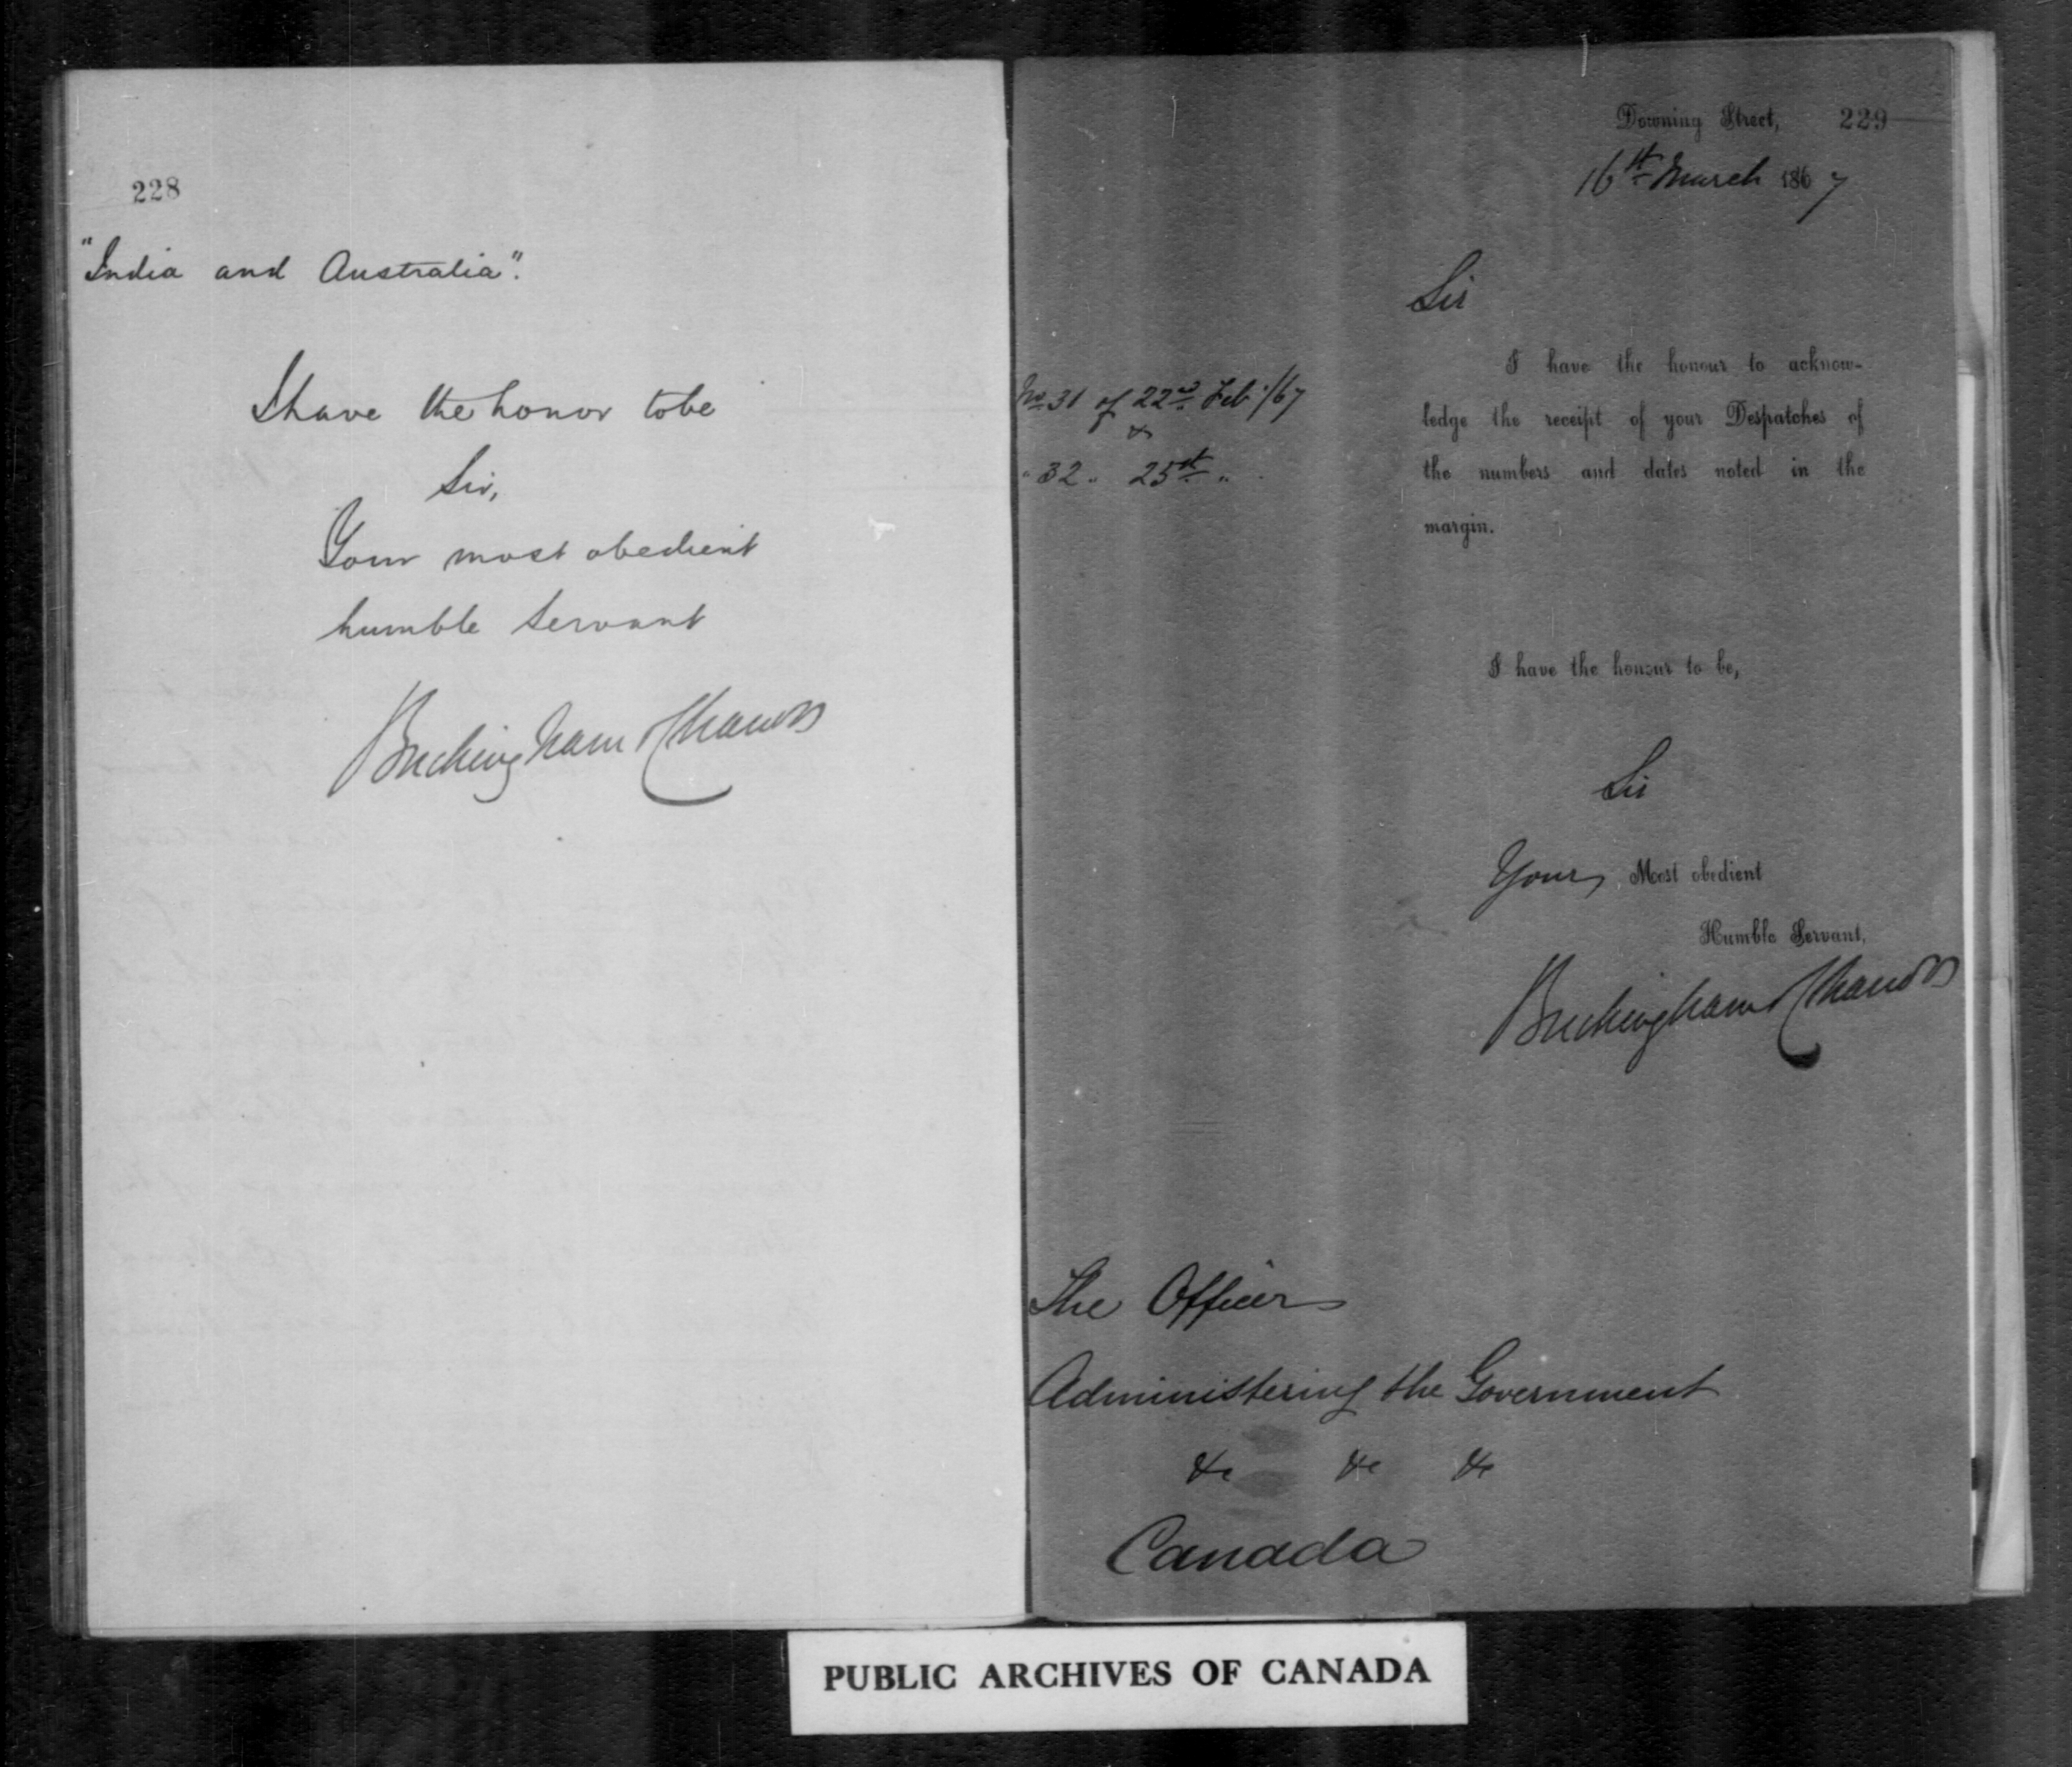 228
"India and Australia".
I have the honor to be
Sir,
Your most obedient
humble Servant
Buckingham & Chandos
Downing Street, 229
16th March 1867
Sir
No. 31 of 22nd Feby/67
&
" 32 " 25st "
I have the honour to acknow-
ledge the receipt of your Despatches of
the numbers and dates noted in the
margin.
I have the honour to be,
Sir
Your, Most obedient
Humble Servant,
Buckingham & Chandos
The Officer
Administering the Government
&c &c &c
Canada
PUBLIC ARCHIVES OF CANADA